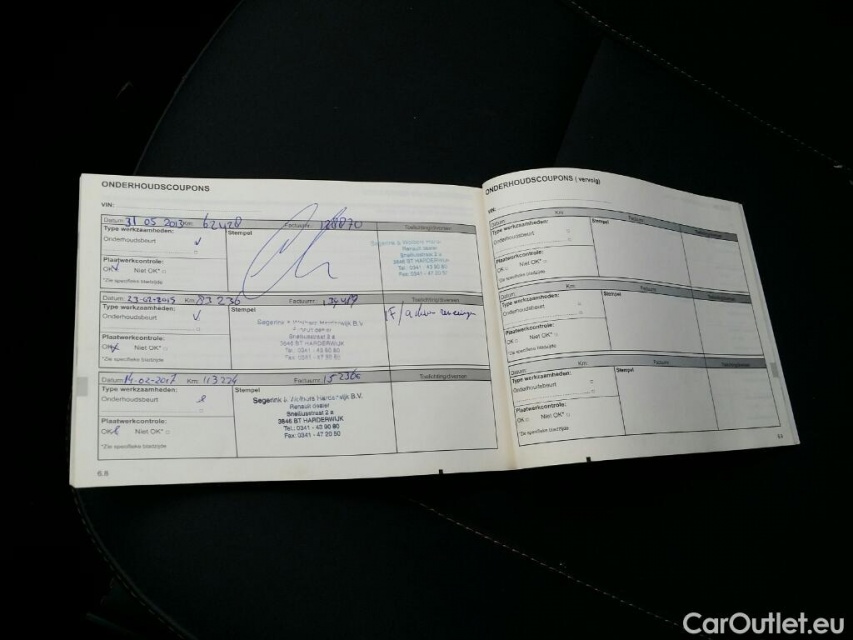 ONDERHOUDSCOUPONS
VIN:
Datum: 31 05 2013 Km: 62428 Factuurnr. 128870 Toelichting/diversen
Type werkzaamheden: Stempel
Onderhoudsbeurt
Renault dealer
Plaatwerkcontrole: 3846 BT HARDERWIJK
OK Niet OK* Tel.: 0341 - 43 90 80
*Zie specifieke bladzijde
Datum: 23-02-2015 Km: 93 236 Factuurnr. Toelichting/diversen
Type werkzaamheden: Stempel
Onderhoudsbeurt Harderwijk B.V.
Renault dealer
Snelliusstraat 2 a
Plaatwerkcontrole: 3846 BT HARDERWIJK
OK Niet OK* Tel.: 0341 - 43 90 80
*Zie specifieke bladzijde
Datum: 14-02-2017 Km: 113224 Factuurnr. 152366 Toelichting/diversen
Type werkzaamheden: Stempel
Onderhoudsbeurt Segerink & Wolthuis Harderwijk B.V.
Renault dealer
Snelliusstraat 2 a
Plaatwerkcontrole: 3846 BT HARDERWIJK
OK Niet OK* Tel.: 0341 - 43 90 80
*Zie specifieke bladzijde Fax: 0341 - 47 20 50
6.8
ONDERHOUDSCOUPONS (vervolg)
VIN:
Datum: Km: Factuurnr. Toelichting/diversen
Type werkzaamheden: Stempel
Onderhoudsbeurt
Plaatwerkcontrole:
OK Niet OK*
*Zie specifieke bladzijde
Datum: Km: Factuurnr. Toelichting/diversen
Type werkzaamheden: Stempel
Onderhoudsbeurt
Plaatwerkcontrole:
OK Niet OK*
*Zie specifieke bladzijde
Datum: Km: Factuurnr. Toelichting/diversen
Type werkzaamheden: Stempel
Onderhoudsbeurt
Plaatwerkcontrole:
OK Niet OK*
*Zie specifieke bladzijde
CarOutlet.eu